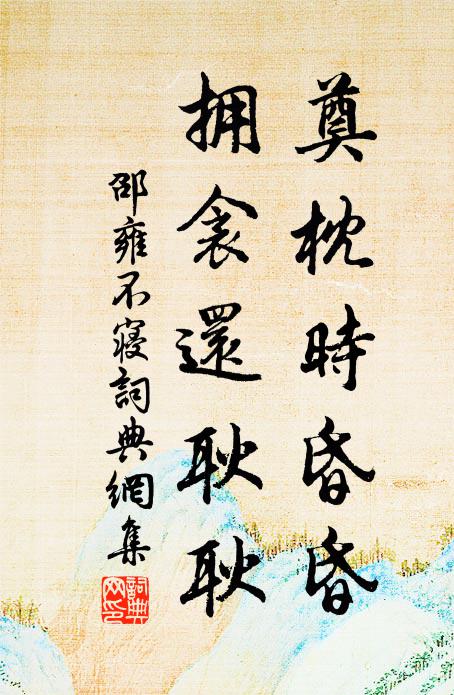 奠枕時昏昏
拥衾還耿耿
邵雍不寝詞典網集
詞典